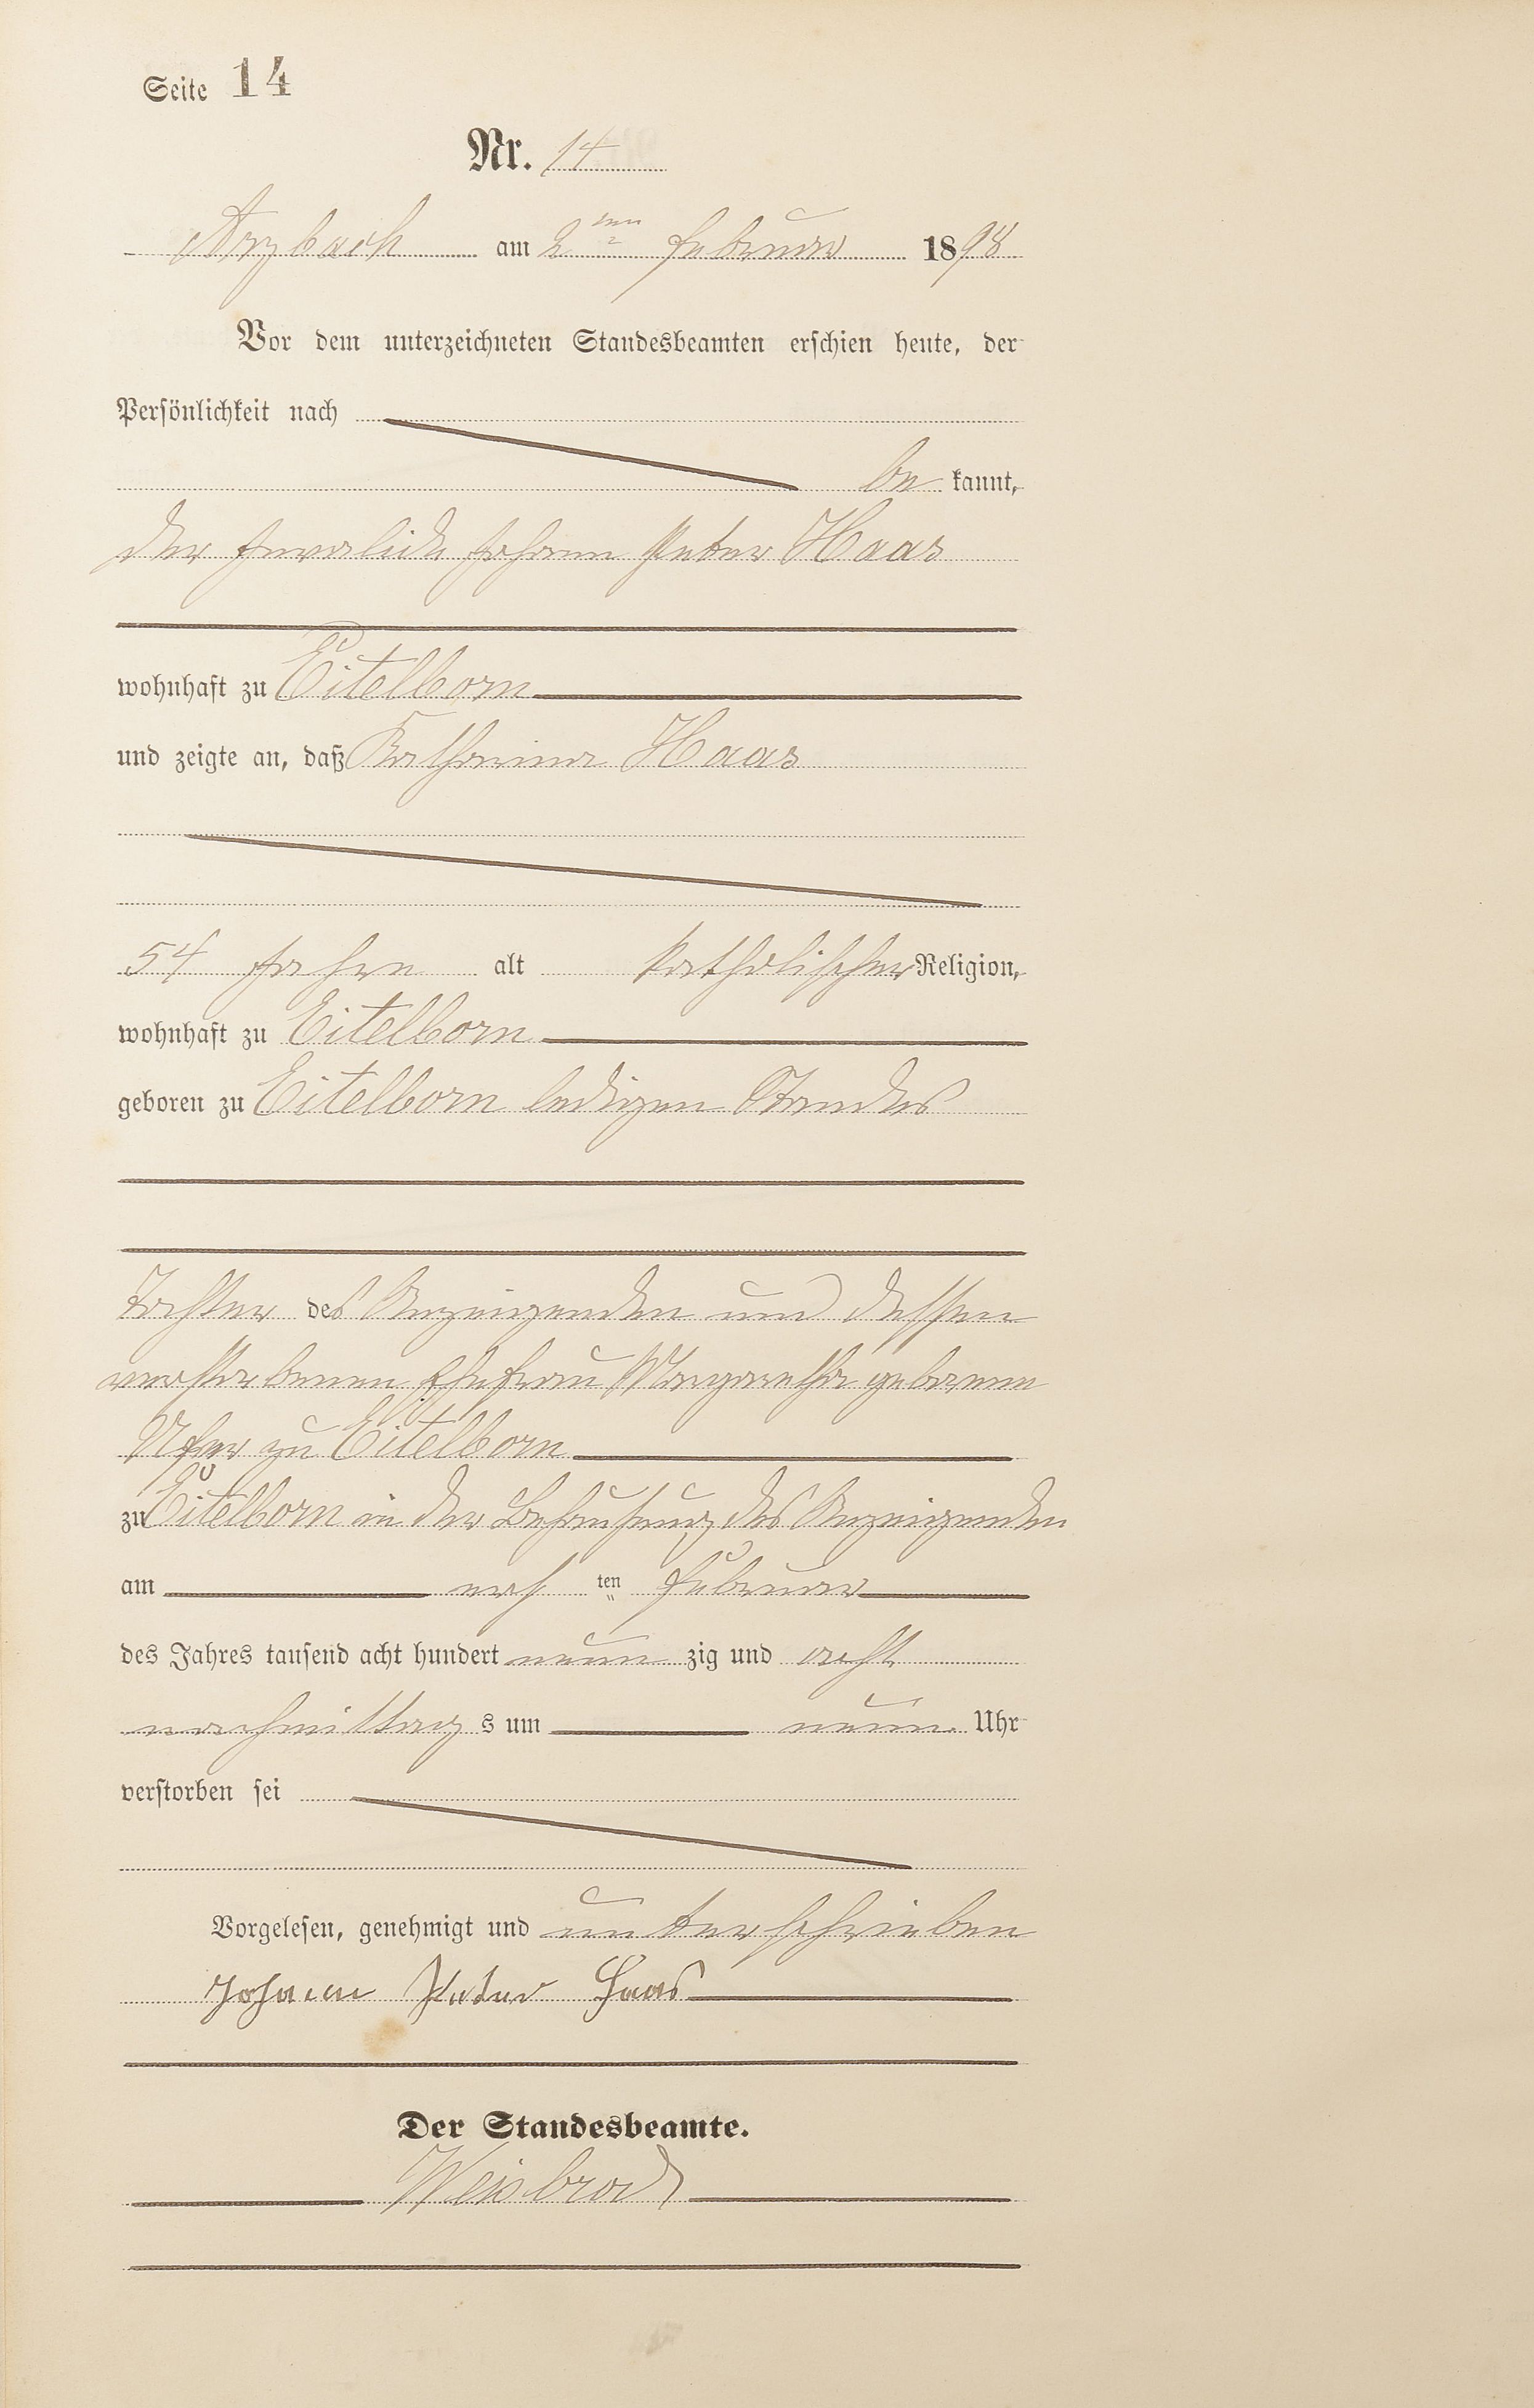 Seite 14
Nr. 14
Arzbach am 2 ten Februar 1898
Vor dem unterzeichneten Standesbeamten erschien heute, der
Persönlichkeit nach
be kannt,
der Johann Peter Haas
wohnhaft zu Eitelborn
und zeigte an, daß Katharina Haas
54 Jahre alt katholischer Religion,
wohnhaft zu Eitelborn
geboren zu Eitelborn ledigen Standes
Tochter des Anzeigenden und dessen
verstorbenen Ehefrau Margaretha geborene
zu Eitelborn
zu Eitelborn in der Behausung des Anzeigenden
am ersten Februar
des Jahres tausend acht hundert neun zig und acht
nachmittag s um neun Uhr
verstorben sei
Vorgelesen, genehmigt und unterschrieben
Johann Peter Haas
Der Standesbeamte.
Weisbrod